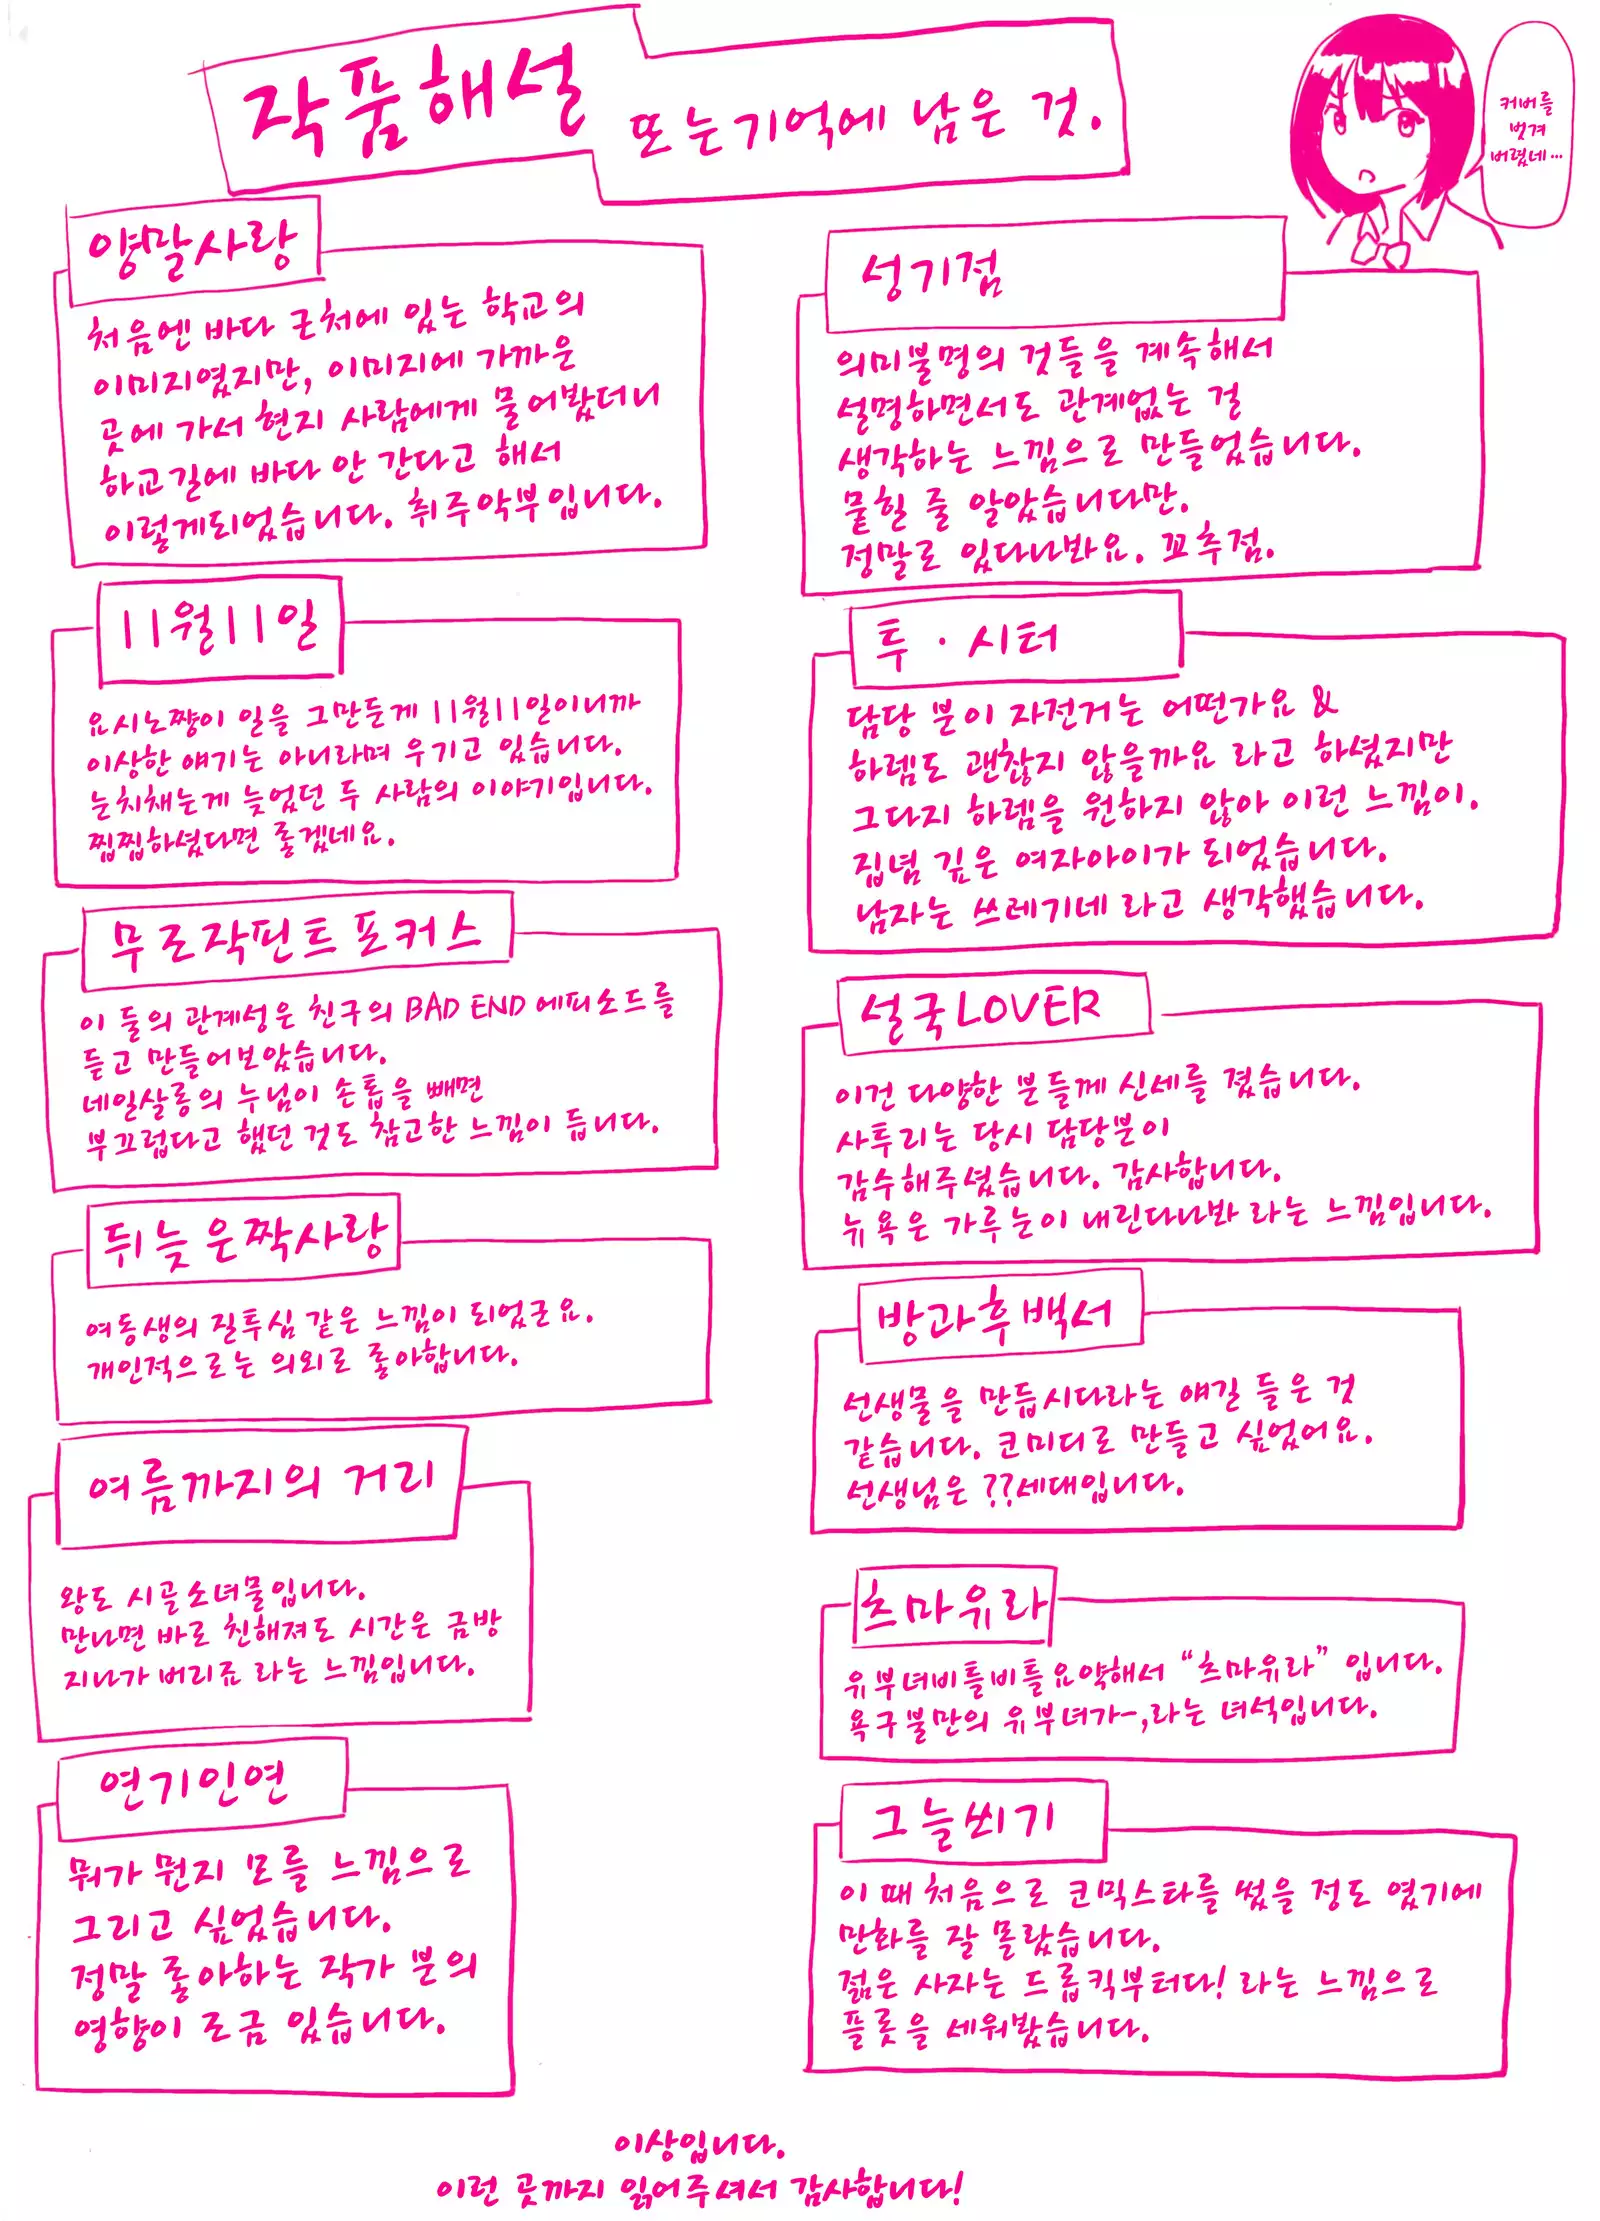 작품해설
또는기억에 남은 것.
커버를
벗겨
버렸네…
양말사랑
처음엔 바다 근처에 있는 학교의
이미지였지만, 이미지에 가까운
곳에 가서 현지 사람에게 물어봤더니
하교길에 바다 안 간다고 해서
이렇게되었습니다. 취주악부입니다.
11월11일
요시노쨩이 일을 그만둔게 11월11일이니까
이상한 얘기는 아니라며 우기고 있습니다.
눈치채는게 늦었던 두 사람의 이야기입니다.
찝찝하셨다면 좋겠네요.
무로작핀트포커스
이 둘의 관계성은 친구의 BAD END에피소드를
듣고 만들어보았습니다.
네일살롱의 누님이 손톱을 빼면
부끄럽다고 했던 것도 참고한 느낌이 듭니다.
뒤늦은짝사랑
여동생의 질투심 같은 느낌이 되었군요.
개인적으로는 의외로 좋아합니다.
여름까지의 거리
왕도 시골소녀물입니다.
만나면 바로 친해져도 시간은 금방
지나가 버리죠 라는 느낌입니다.
연기인연
뭐가 뭔지 모를 느낌으로
그리고 싶었습니다.
정말 좋아하는 작가 분의
영향이 조금 있습니다.
성기점
의미불명의 것들을 계속해서
설명하면서도 관계없는 걸
생각하는 느낌으로 만들었습니다.
묻힐 줄 알았습니다만.
정말로 있다나봐요. 꼬추점.
투・시터
담당 분이 자전거는 어떤가요 &
하렘도 괜찮지 않을까요 라고 하셨지만
그다지 하렘을 원하지 않아 이런 느낌이.
집념 깊은 여자아이가 되었습니다.
남자는 쓰레기네 라고 생각했습니다.
설국LOVER
이건 다양한 분들께 신세를 졌습니다.
사투리는 당시 담당분이
감수해주셨습니다. 감사합니다.
뉴욕은 가루눈이 내린다나봐 라는 느낌입니다.
방과후백서
선생물을 만듭시다라는 얘길 들은 것
같습니다. 코미디로 만들고 싶었어요.
선생님은 ??세대입니다.
츠마유라
유부녀비틀비틀요약해서 “츠마유라” 입니다.
욕구불만의 유부녀가-,라는 녀석입니다.
그늘쐬기
이 때 처음으로 코믹스타를 썼을 정도 였기에
만화를 잘 몰랐습니다.
젊은 사자는 드롭킥부터다! 라는 느낌으로
플롯을 세워봤습니다.
이상입니다.
이런 곳까지 읽어주셔서 감사합니다!